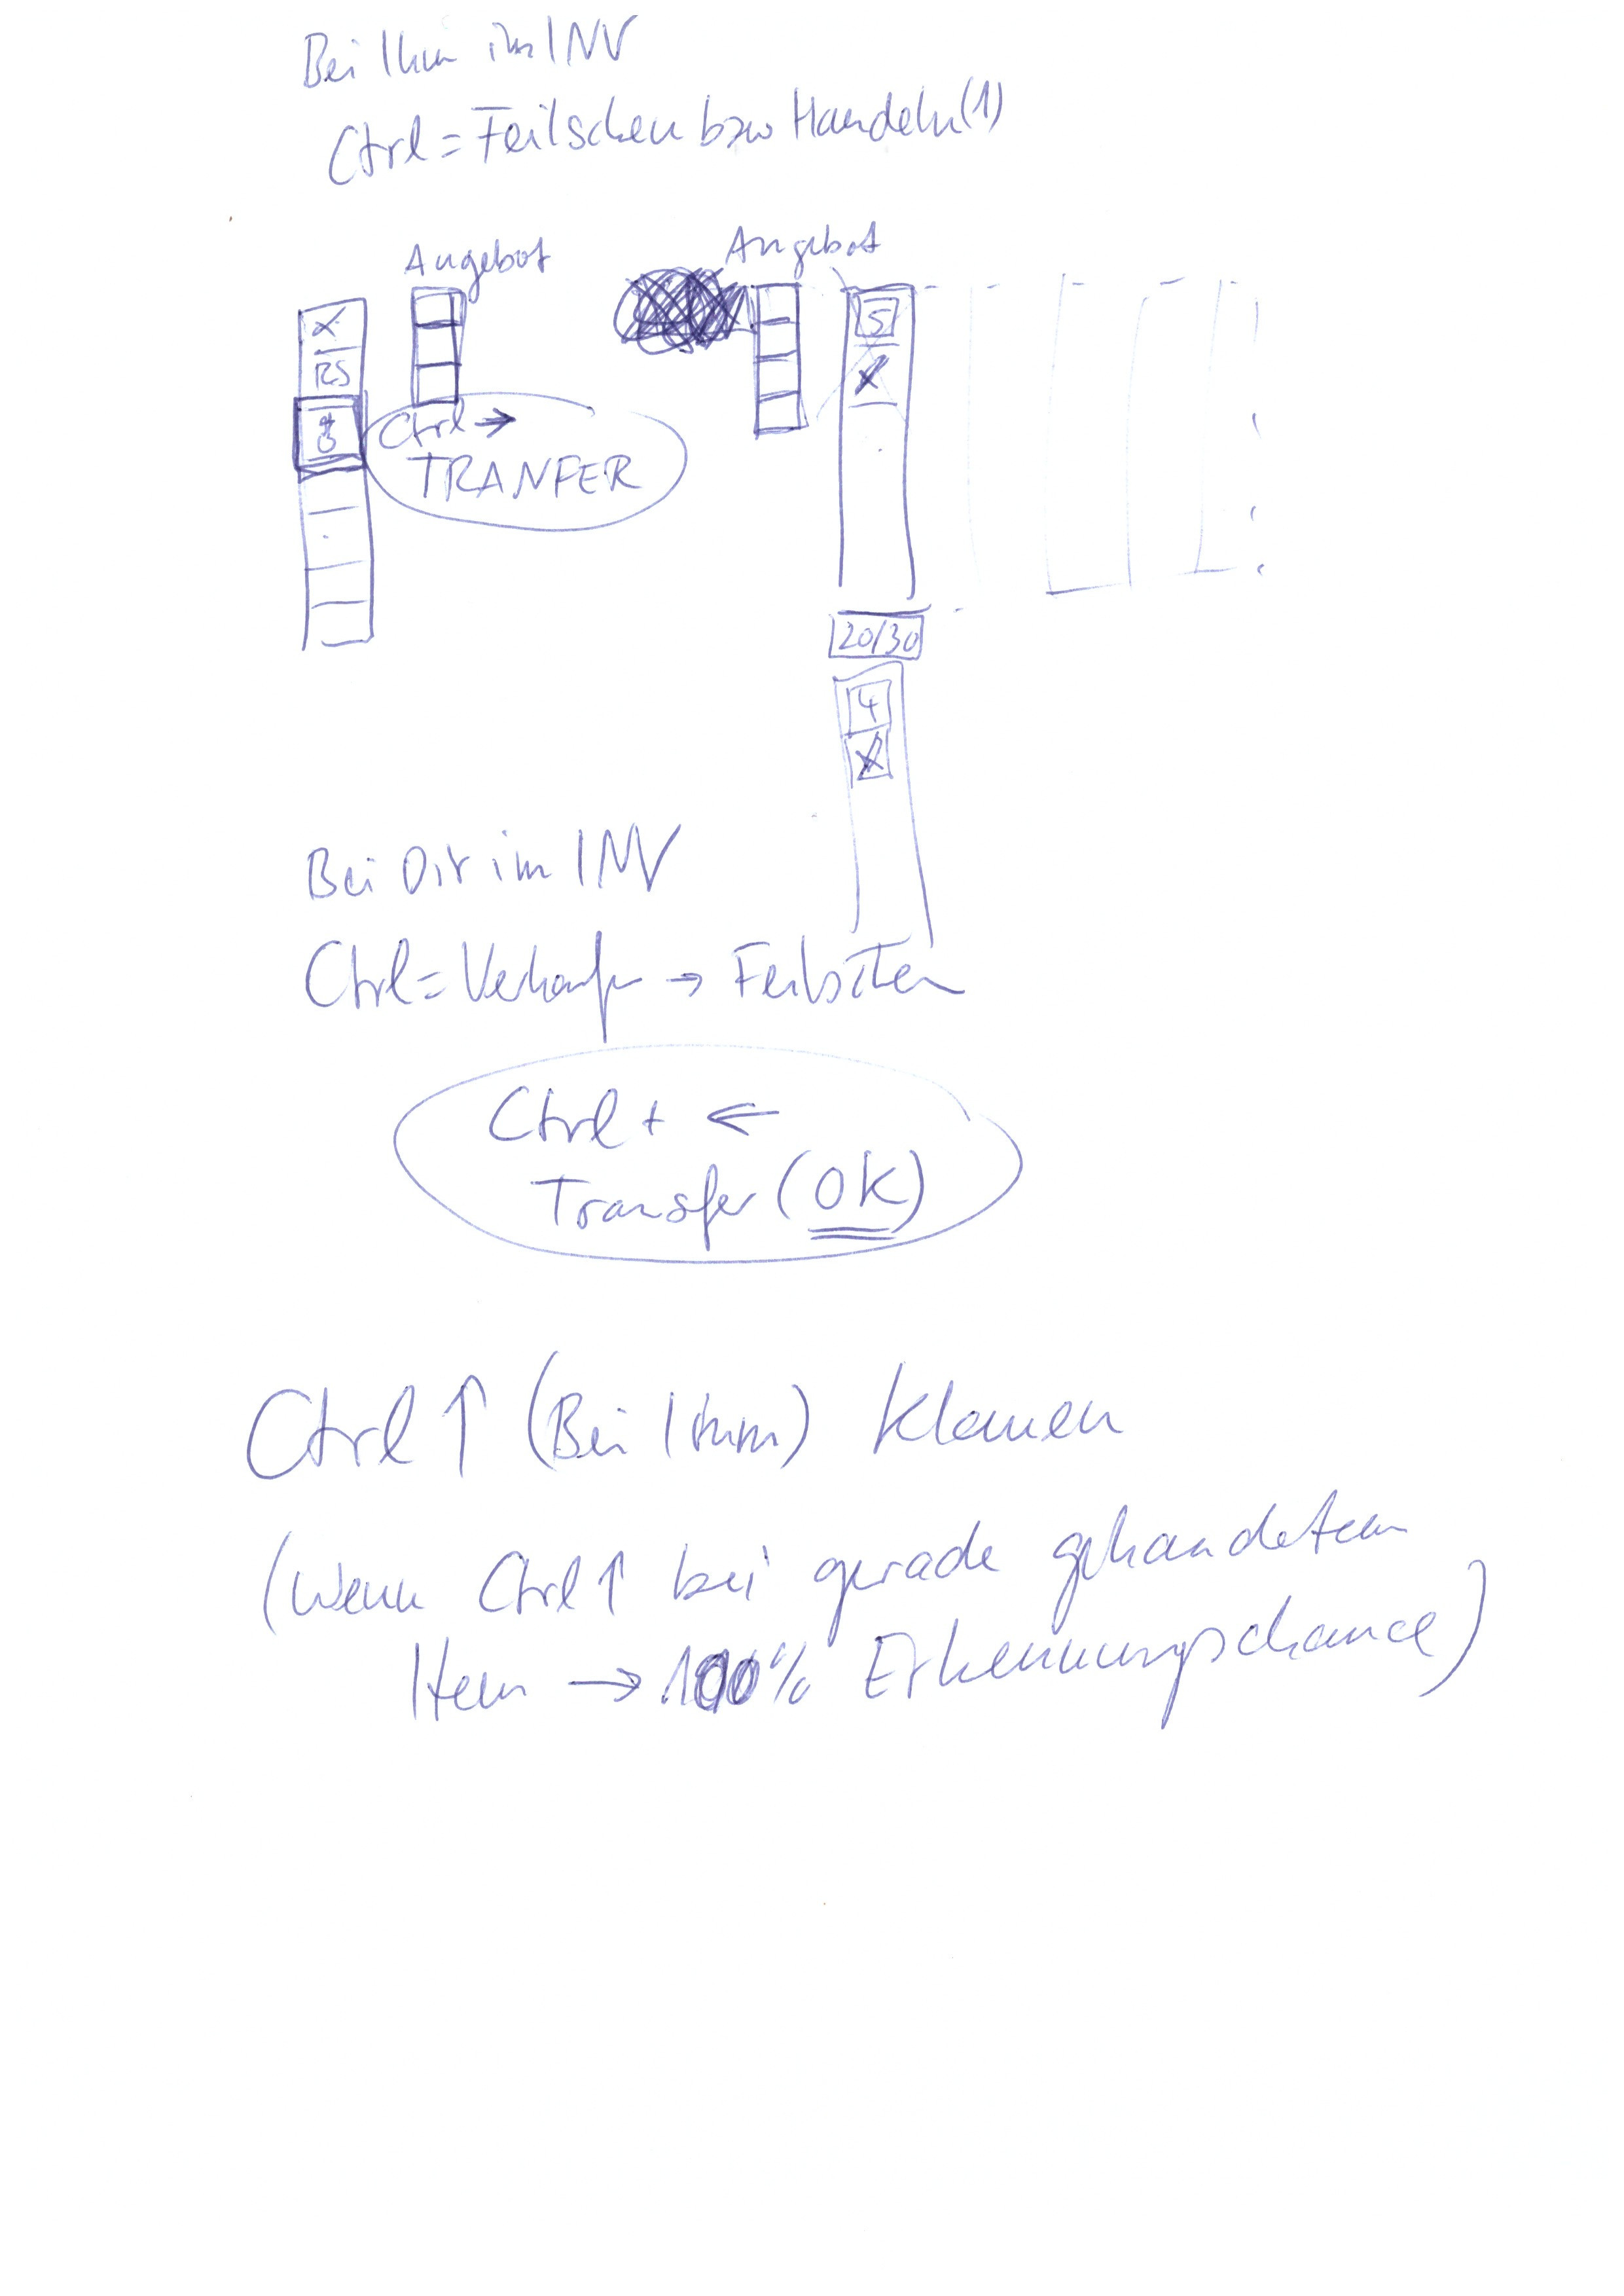 Bei Ihm im INV
Ctrl = Feilschen bzw Handeln (1)
Angebot
Angebot
X
RS
5
X
Ctrl →
TRANFER
20/30
4
X
Bei Dir im INV
Ctrl = Verkaufen → Feilschen
Ctrl + ←
Transfer (OK)
Ctrl ↑ (Bei Ihm) Klauen
(Wenn Ctrl ↑ bei gerade gehandetem
Item → 100% Erkennungschance)